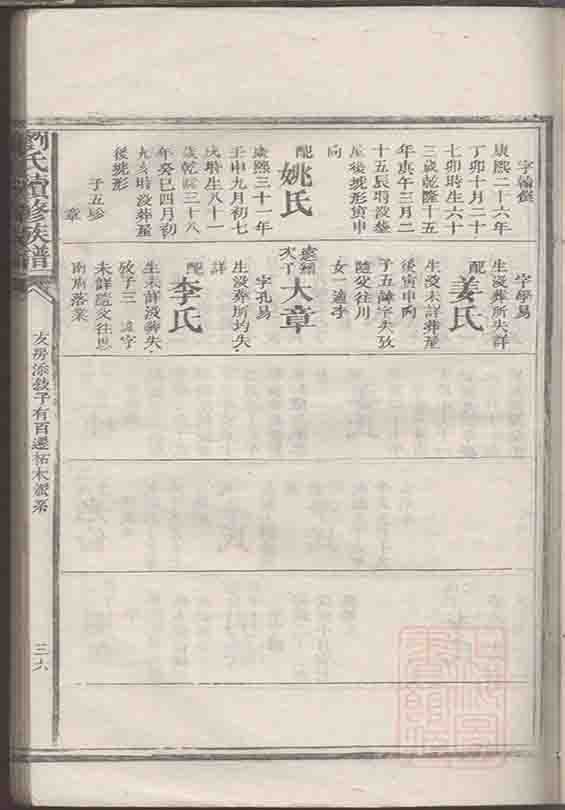 字翰儒
康熙二十六年
丁卯十月二十
七卯時生六十
三歲乾隆十五
年庚午三月二
十五辰時沒葬
屋後虎形寅申
向
配
姚氏
康熙三十一年
壬申九月初七
戌時生八十一
歲乾隆三十八
年癸巳四月初
九亥時沒葬屋
後虎形
子五珍
章
字學易
生沒葬所失詳
配
姜氏
生沒未詳葬屋
後寅申向
子五諱字失攷
隨父往川
女一適李
大章
字孔易
生沒葬所均失
詳
配
李氏
生未詳沒葬失
攷子三 諱字
未詳隨父往思
南府落業
劉氏續修族譜
友房添錢子有百遷柘木灣系
三六